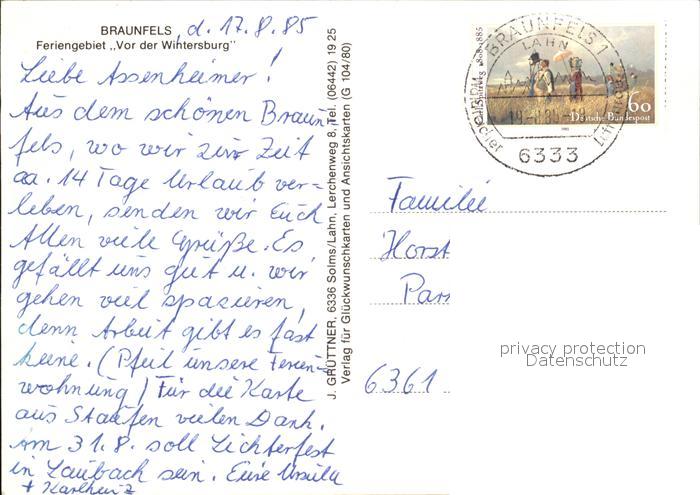 BRAUNFELS, d. 17.8.85
Feriengebiet „Vor der Wintersburg"
Liebe Assenheimer!
Aus dem schönen Braun-
fels, wo wir zur Zeit
ca. 14 Tage Urlaub ver=
leben, senden wir Euch
Allen viele Grüße. Es
gefällt uns gut u. wir
gehen viel spazieren,
denn Arbeit gibt es fast
keine. (Pfeil unsere Ferien=
wohnung) Für die Karte
aus Staufen vielen Dank.
Am 31.8. soll Lichterfest
in Laubach sein. Eure Ursula
+ Karlheinz
J. GRÜTTNER, 6336 Solms/Lahn, Lerchenweg 8, Tel. (06442) 19 25
Verlag für Glückwunschkarten und Ansichtskarten (G 104/80)
BRAUNFELS 1
LAHN
6333
Spitzweg 1808-1885
60
Deutsche Bundespost
1985
Familie
Horst
Par
6361
privacy protection
Datenschutz